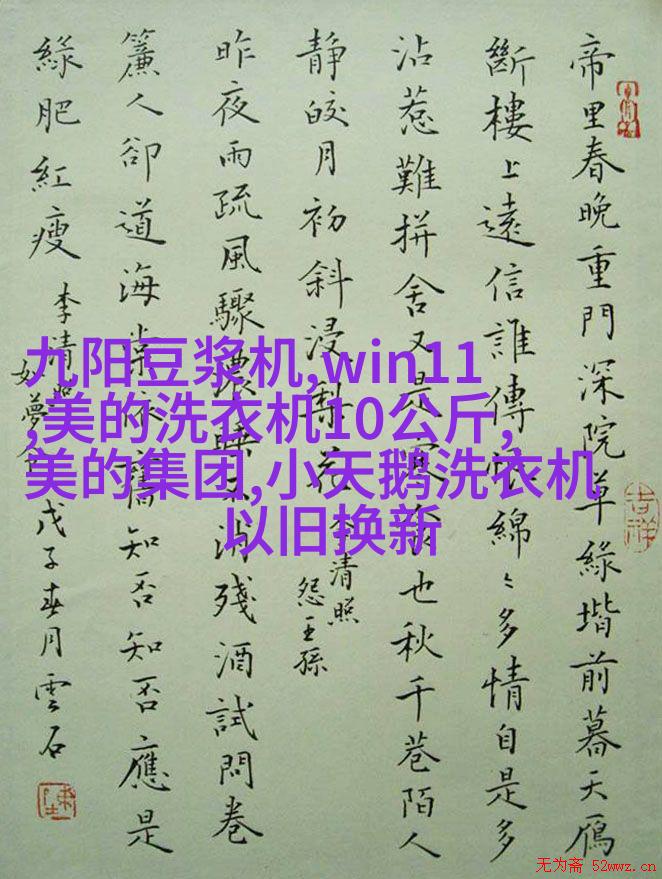 帝里春晚重門深院草綠堦前暮天鴈
斷樓上遠信誰傳恨綿〻多情自是多
沾惹難拼舍又是寒食也秋千巷陌人
靜皎月初斜浸梨花
李清照
怨王孫
昨夜雨疏風驟濃睡不消殘酒試問卷
簾人卻道海棠依舊知否知否應是
綠肥紅瘦
李清照
如夢令
戊子春月雲石
吉祥
九阳豆浆机,win11
,美的洗衣机10公斤,
美的集团,小天鹅洗衣机
以旧换新
无为斋 52wwz.cn